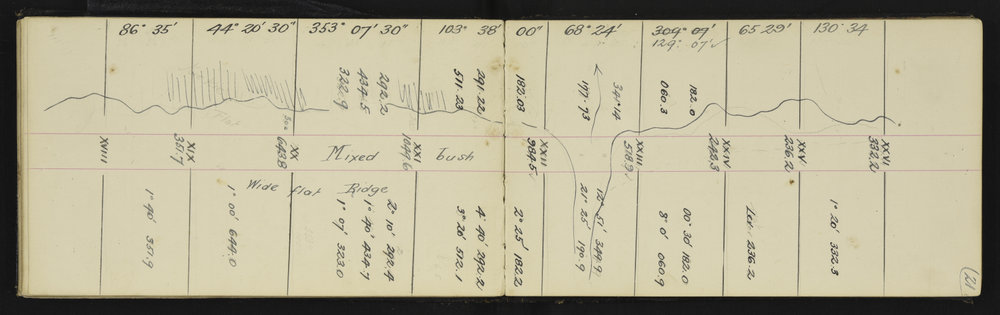 86° 35'
44° 20' 30"
353° 07' 30"
103° 38' 00"
68° 24'
304° 09'
129° 07'
65 29'
130° 34
292.2
434.5
322.9
291.22
511.23
182.03
197.73
34° 14
182.0
060.3
flat
XVIII
XIX
351.7
XX
643.8
Mixed bush
XXI
1049.6
XXII
984.5
XXIII
518.9
XXIV
242.3
XXV
236.2
XXVI
332.2
Wide flat Ridge
1° 40' 351.9
1° 00' 644.0
2° 10' 292.4
1° 40' 434.7
1° 07' 323.0
4° 40' 292.2
3° 26' 512.1
2° 25' 182.2
12° 51' 349.9
21° 25' 190.9
00° 30' 182.0
8° 0' 060.9
Lev. 236.2
1° 20' 332.3
(21)